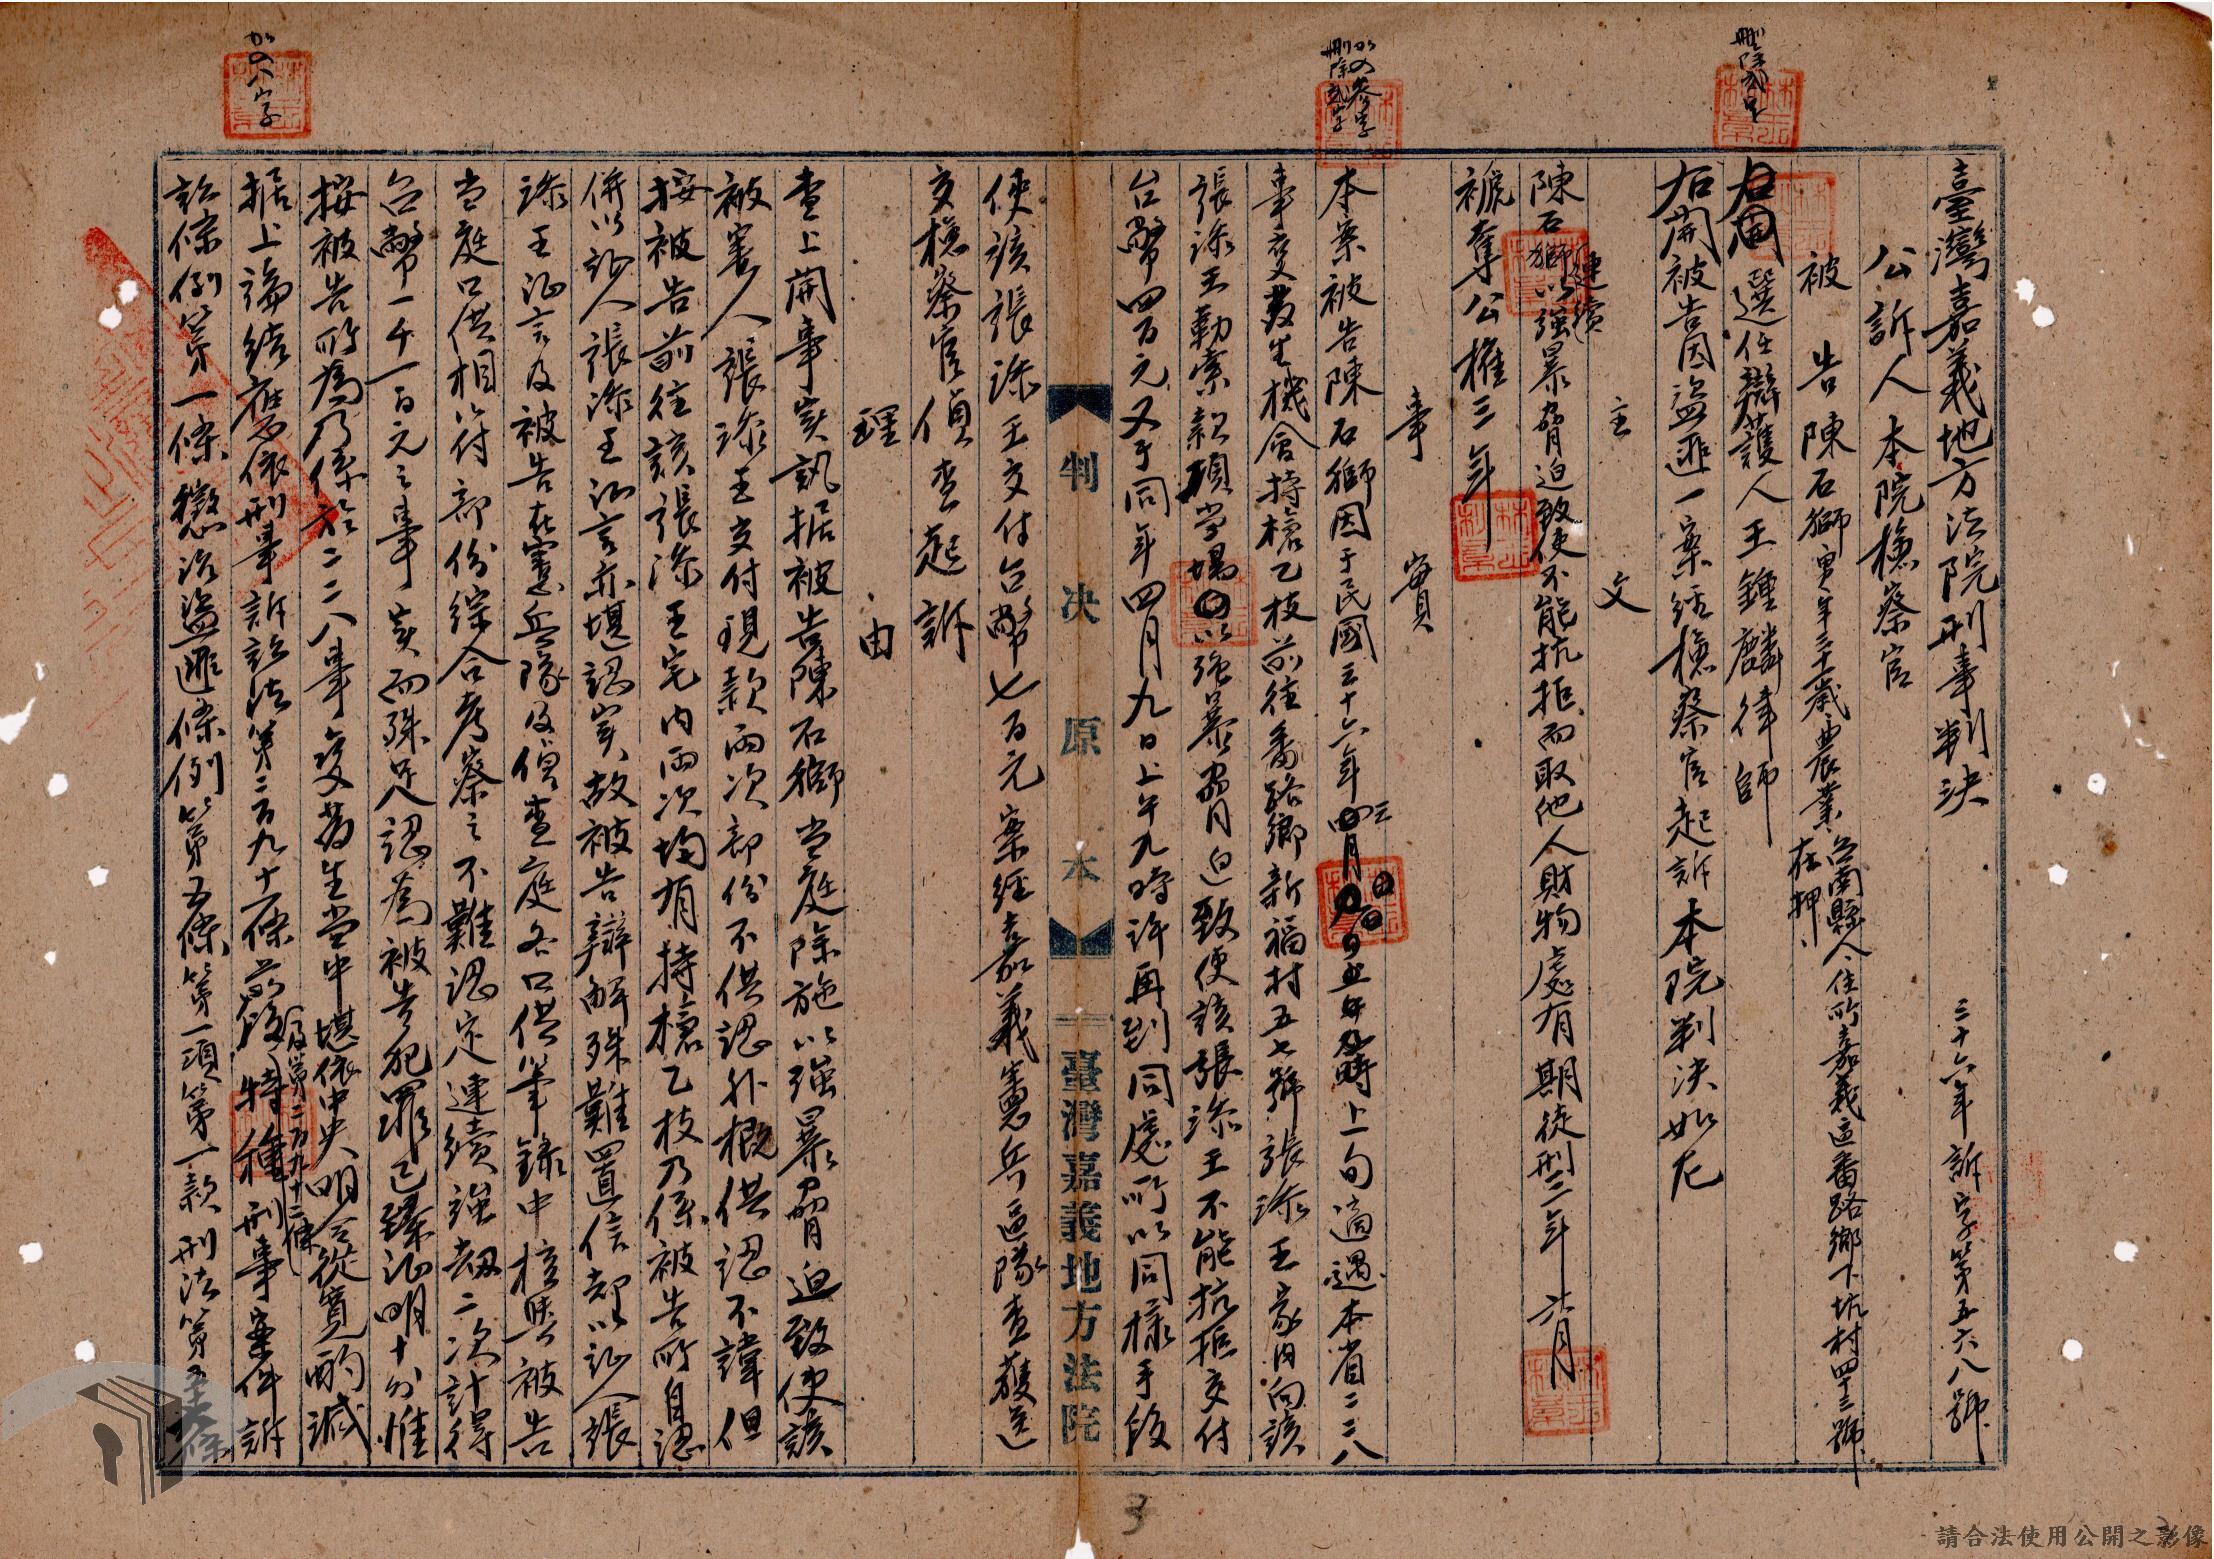 臺灣嘉義地方法院刑事判決　三十六年訴字第五六八號
公訴人本院檢察官
被告陳石獅男年三十歲農業台南縣人住所嘉義區番路鄉下坑村四十三號
在押
選任辯護人王鍾麟律師
右開被告因盜匪一案經檢察官起訴本院判決如左
主文
陳石獅連續以強暴脅迫致使不能抗拒而取他人財物處有期徒刑二年六月
褫奪公權三年
事實
本案被告陳石獅因于民國三十六年三月上旬適遇本省二二八
事變發生機會持槍乙枝前往番路鄉新福村五七號張添王家內向該
張添王勒索款項當場以強暴脅迫致使該張添王不能抗拒交付
台幣四百元又于同年四月九日上午九時許再到同處所以同樣手段
判決原本　臺灣嘉義地方法院
使該張添王交付台幣七百元案經嘉義憲兵區隊查獲送
交檢察官偵查起訴
理由
查上開事實訊据被告陳石獅當庭除施以強暴脅迫致使該
被害人張添王交付現款兩次部份不供認外概供認不諱但
按被告前往該張添王宅內兩次均有持槍乙枝乃係被告所自認
併以証人張添王証言亦堪認實故被告辯解殊難置信却以証人張
添王証言及被告在憲兵隊及偵查庭各口供筆錄中核與被告
當庭口供相符部份綜合考察之不難認定連續強劫二次計得
台幣一千一百元之事實而殊足認為被告犯罪已臻証明十分惟
按被告所為乃係於二二八事變發生當中堪依中央明令從寬酌減
据上論結應依刑事訴訟法第二百九十一條前段及第二百九十二條特種刑事案件訴
訟條例第一條懲治盜匪條例第五條第一項第一款刑法第五
加入八字
加入參字
刪除
刪除
3
請合法使用公開之影像